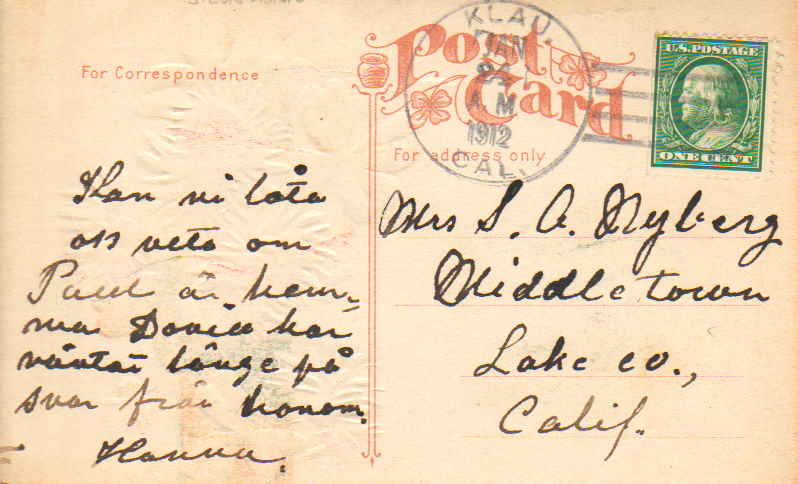 For Correspondence
Post Card
For address only
KLAU,
JAN
24
A.M.
1912
CAL.
U.S. POSTAGE
ONE CENT
Kan vi låta
oss veta om
Paul är hem-
ma David har
väntat länge på
svar från honom.
Hanna.
Mrs S. A. Nyberg
Middletown
Lake co.,
Calif.